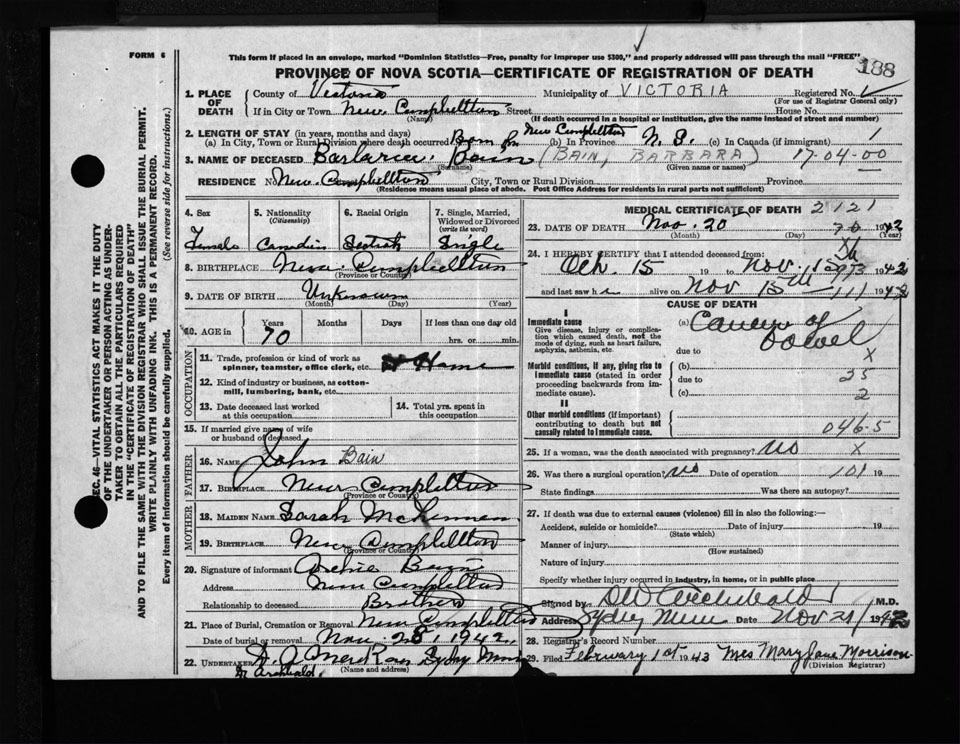 FORM 6
This form if placed in an envelope, marked "Dominion Statistics—Free, penalty for improper use $300," and properly addressed will pass through the mail "FREE"
PROVINCE OF NOVA SCOTIA—CERTIFICATE OF REGISTRATION OF DEATH
188
SEC. 46—VITAL STATISTICS ACT MAKES IT THE DUTY
OF THE UNDERTAKER OR PERSON ACTING AS UNDER-
TAKER TO OBTAIN ALL THE PARTICULARS REQUIRED
IN THE "CERTIFICATE OF REGISTRATION OF DEATH"
AND TO FILE THE SAME WITH THE DIVISION REGISTRAR WHO SHALL ISSUE THE BURIAL PERMIT.
WRITE PLAINLY WITH UNFADING INK. THIS IS A PERMANENT RECORD.
Every item of information should be carefully supplied. (See reverse side for instructions.)
1. PLACE OF DEATH County of Victoria Municipality of VICTORIA Registered No.
(For use of Registrar General only)
If in City or Town New Campbellton Street House No.
(Name) (If death occurred in a hospital or institution, give the name instead of street and number)
2. LENGTH OF STAY (in years, months and days)
(a) In City, Town or Rural Division where death occurred Born New Campbellton (b) In Province N. S. (c) In Canada (if immigrant) 1
3. NAME OF DECEASED Barbara Bain (BAIN, BARBARA) 17-04-00
(Surname) (Given name or names)
RESIDENCE No. New Campbellton City, Town or Rural Division Province
(Residence means usual place of abode. Post Office Address for residents in rural parts not sufficient)
4. Sex Female
5. Nationality (Citizenship) Canadian
6. Racial Origin Scotch
7. Single, Married, Widowed or Divorced (write the word) Single
8. BIRTHPLACE New Campbellton
(Province or Country)
9. DATE OF BIRTH Unknown
(Month) (Day) (Year)
10. AGE in Years Months Days If less than one day old
70 hrs. or min.
OCCUPATION
11. Trade, profession or kind of work as spinner, teamster, office clerk, etc. Home
12. Kind of industry or business, as cotton-mill, lumbering, bank, etc.
13. Date deceased last worked at this occupation
14. Total yrs. spent in this occupation
15. If married give name of wife or husband of deceased
FATHER
16. NAME John Bain
17. BIRTHPLACE New Campbellton
(Province or Country)
MOTHER
18. MAIDEN NAME Sarah McKinnen
19. BIRTHPLACE New Campbellton
(Province or Country)
20. Signature of informant Archie Bain
Address New Campbellton
Relationship to deceased Brother
21. Place of Burial, Cremation or Removal New Campbellton
Date of burial or removal Nov. 28, 1942
22. UNDERTAKER Sydney Mines
(Name and address)
MEDICAL CERTIFICATE OF DEATH 2121
23. DATE OF DEATH Nov. 20 1942
(Month) (Day) (Year)
24. I HEREBY CERTIFY that I attended deceased from:
Oct. 15 19 to Nov. 1942
and last saw h alive on Nov 15th 1942
CAUSE OF DEATH
I
Immediate cause
Give disease, injury or complication which caused death, not the mode of dying, such as heart failure, asphyxia, asthenia, etc.
(a) Cancer of bowel
due to X
Morbid conditions, if any, giving rise to immediate cause (stated in order proceeding backwards from immediate cause).
(b)
due to 25
(c) 2
II
Other morbid conditions (if important) contributing to death but not causally related to immediate cause.
046-5
25. If a woman, was the death associated with pregnancy? No X
26. Was there a surgical operation? No Date of operation 101 19
State findings Was there an autopsy?
27. If death was due to external causes (violence) fill in also the following:—
Accident, suicide or homicide? Date of injury 19
(State which)
Manner of injury
(How sustained)
Nature of injury
Specify whether injury occurred in industry, in home, or in public place
Signed by DW Archibald M.D.
Address Sydney Mines Date Nov 21/1942
28. Registrar's Record Number
29. Filed February 1st 1943 Mrs Mary Jane Morrison
(Division Registrar)